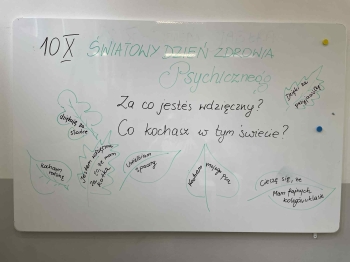 10 X ŚWIATOWY DZIEŃ ZDROWIA
Psychicznego
Za co jesteś wdzięczny?
Co kochasz w tym świecie?
Dzięki za
przyjaciół
dziękuję za
siostrę
Kocham
rodzinę
Jestem wdzięczna
za to, że mam
Uwielbiam
śpiewać
Kocham mojego psa
Cieszę się, że
Mam fajnych
kolegów w klasie